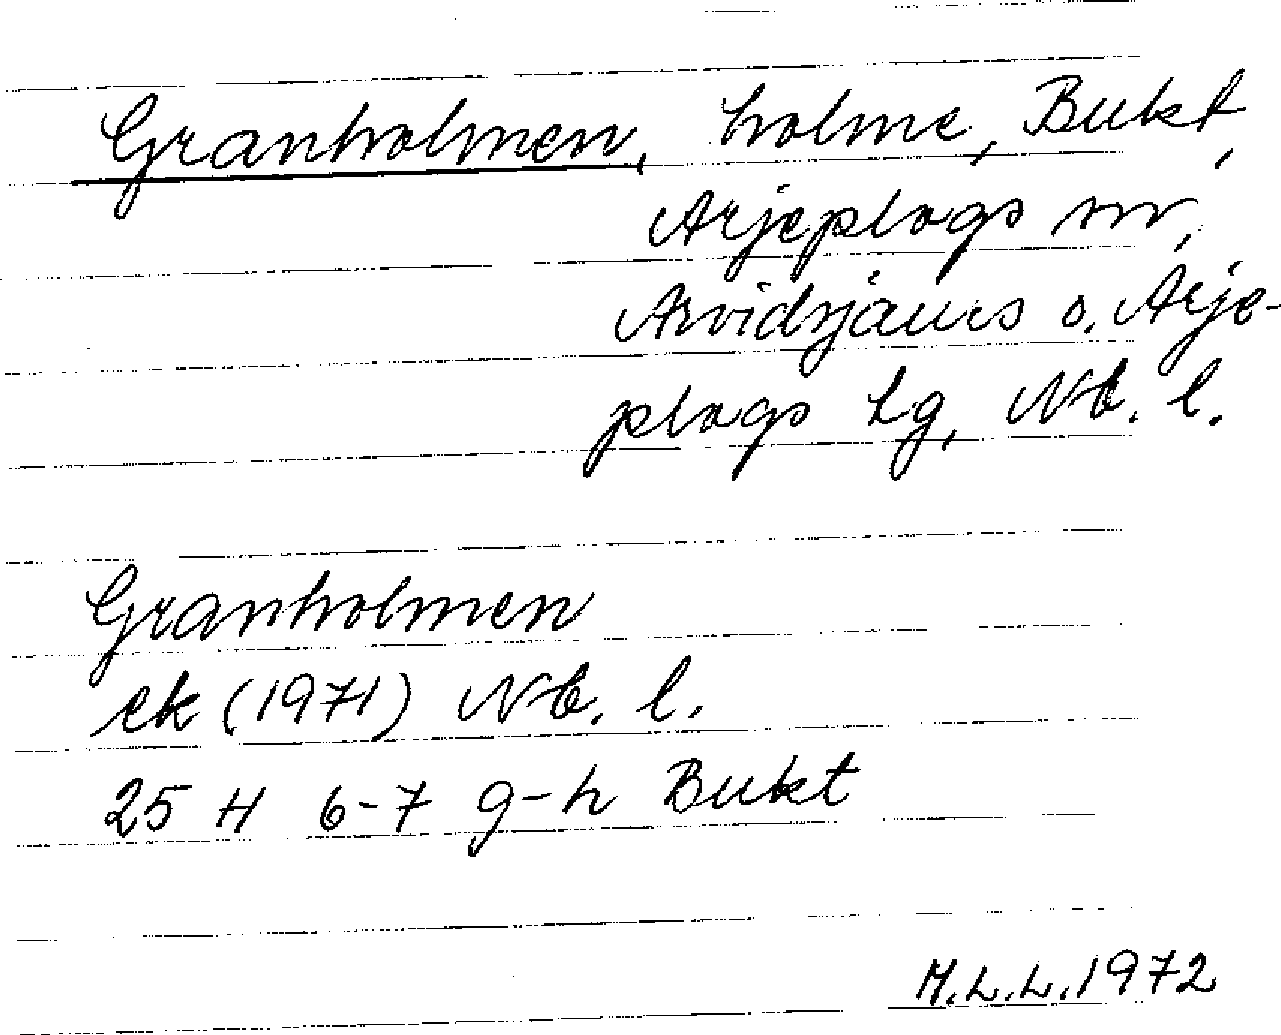 Granholmen, holme, Bukt,
Arjeplogs sn,
Arvidsjaurs o. Arje-
plogs lg, Nb. l.
Granholmen
ek (1971) Nb. l.
25 H 6-7 g-h Bukt
M.L.L. 1972